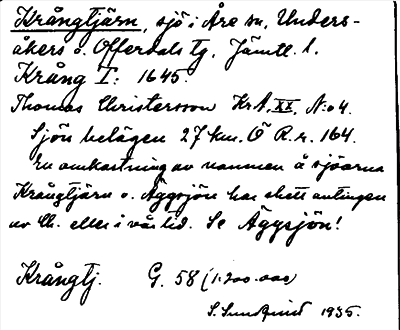 Krångtjärn, sjö i Åre sn, Unders-
åkers o. Offerdals tg, Jämtl. l.
Krång T: 1645.
Thomas Christersson KrA. XX, N:o 4.
Sjön belägen 27 km. Ö R.r. 164.
En omkastning av namnen å sjöarna
Krångtjärn o. Äggsjön har skett antingen
av Ch. eller i vår tid. Se Äggsjön!
Krångtj. G. 58 (1:200.000)
S. 1935.